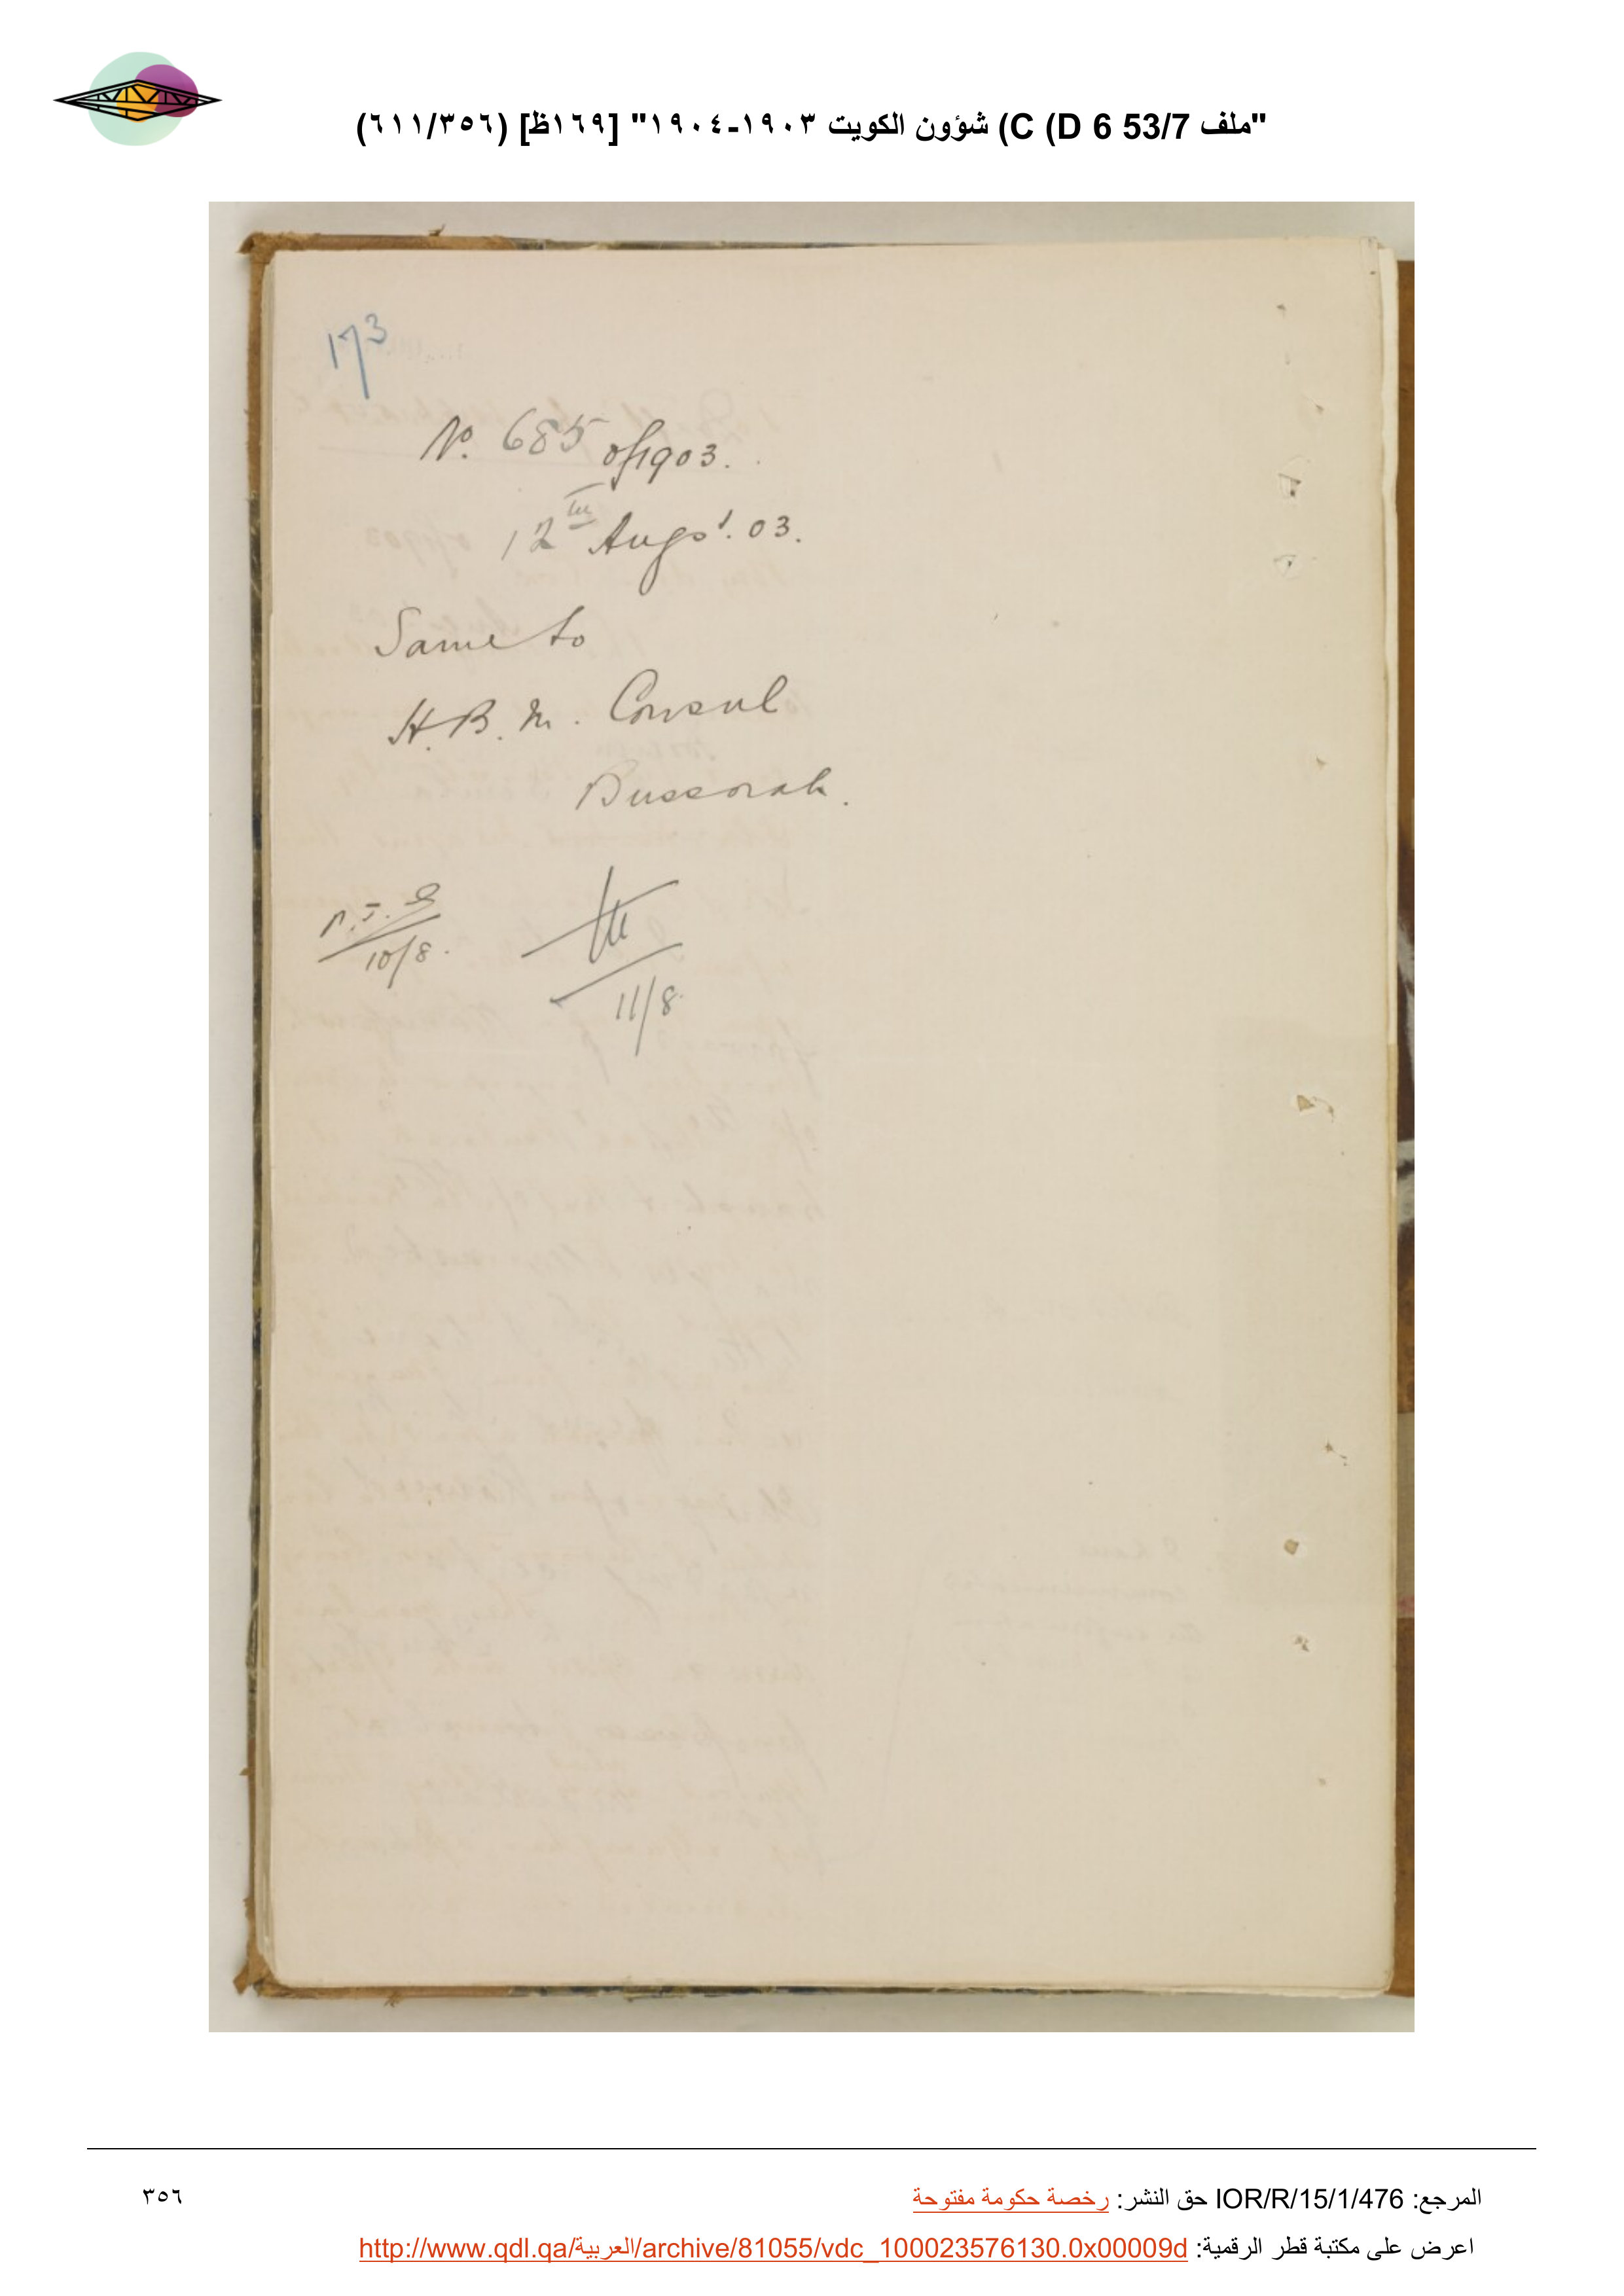 "ملف 53/7 C (D 6) شؤون الكويت ١٩٠٣-١٩٠٤" [١٦٩ظ] (٣٥٦/٦١١)
173
No. 685 of 1903.
12th Augst. 03.
Same to
H. B. M. Consul
Bussorah.
10/8.
11/8.
المرجع: IOR/R/15/1/476 حق النشر: رخصة حكومة مفتوحة
٣٥٦
اعرض على مكتبة قطر الرقمية: http://www.qdl.qa/العربية/archive/81055/vdc_100023576130.0x00009d